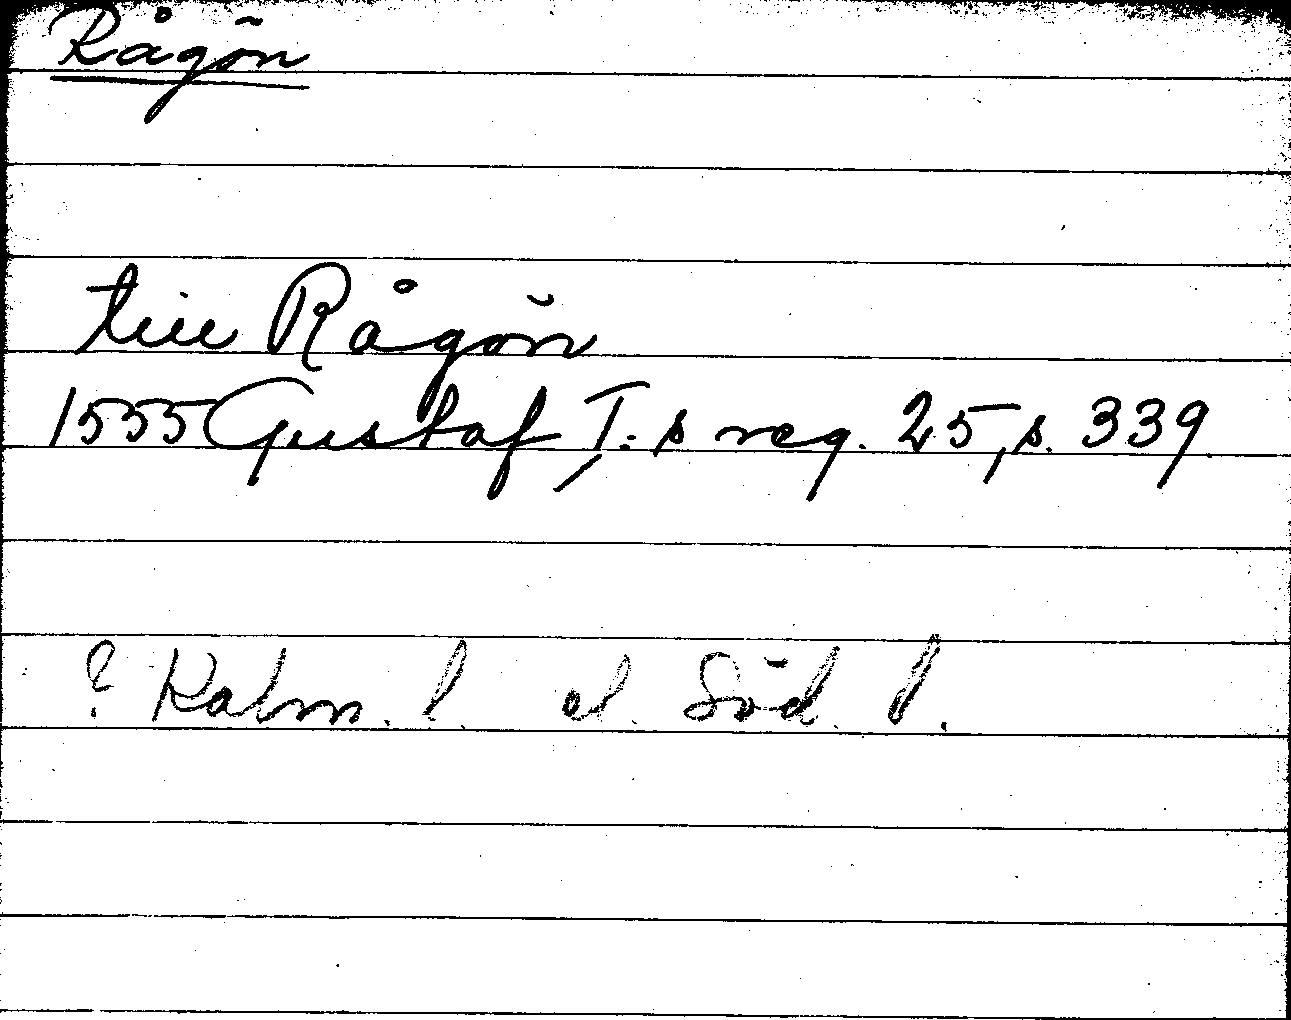 Rågön
till Rågön
1555 Gustaf I:s reg. 25, s. 339
? Kalm. l. el. Söd. l.